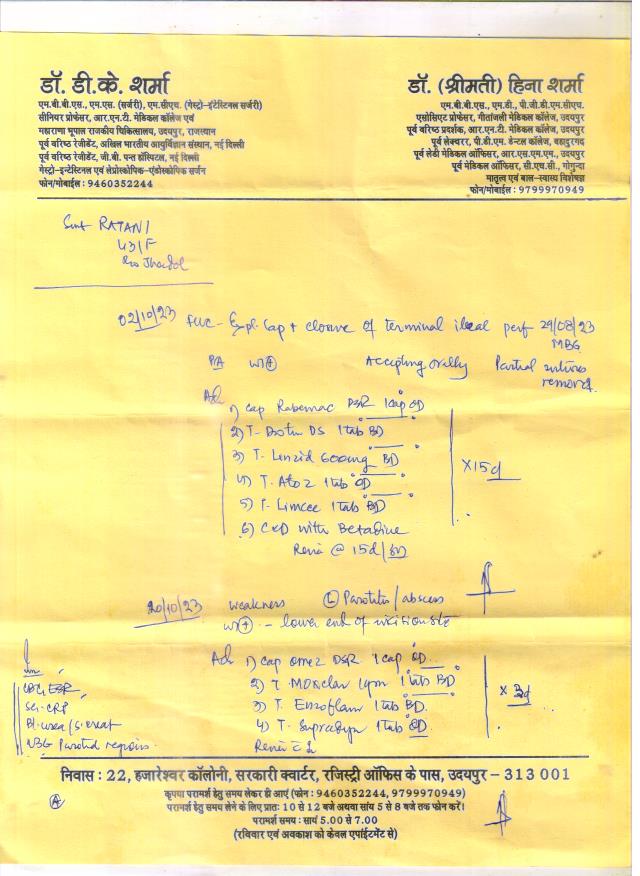 डॉ. डी.के. शर्मा
एम.बी.बी.एस., एम.एस. (सर्जरी), एम.सीएच. (गेस्ट्रो-इंटेस्टिनल सर्जरी)
सीनियर प्रोफेसर, आर.एन.टी. मेडिकल कॉलेज एवं
महाराणा भूपाल राजकीय चिकित्सालय, उदयपुर, राजस्थान
पूर्व वरिष्ठ रेजीडेंट, अखिल भारतीय आयुर्विज्ञान संस्थान, नई दिल्ली
पूर्व वरिष्ठ रेजीडेंट, जी.बी. पन्त हॉस्पिटल, नई दिल्ली
गेस्ट्रो-इन्टेस्टिनल एवं लेप्रोस्कोपिक-एंडोस्कोपिक सर्जन
फोन/मोबाईल : 9460352244
डॉ. (श्रीमती) हिना शर्मा
एम.बी.बी.एस., एम.डी., पी.जी.डी.एम.सीएच.
एसोसिएट प्रोफेसर, गीतांजली मेडिकल कॉलेज, उदयपुर
पूर्व वरिष्ठ प्रदर्शक, आर.एन.टी. मेडिकल कॉलेज, उदयपुर
पूर्व लेक्चरर, पी.डी.एम. डेन्टल कॉलेज, बहादुरगढ़
पूर्व लेडी मेडिकल ऑफिसर, आर.एस.एम.एम., उदयपुर
पूर्व मेडिकल ऑफिसर, सी.एच.सी., गोगुन्दा
मातृत्व एवं बाल-स्वास्थ्य विशेषज्ञ
फोन/मोबाईल : 9799970949
Smt RATANI
43/F
R/o Jhadol
02/10/23 FUC - Expl. Lap + closure of terminal ileal perf 29/08/23
MBG
P/A WI (+) Accepting orally Partial sutures
removed.
Adv 1) Cap Rabemac DSR 1 cap OD
2) T- DS 1 tab BD
3) T- Linzid 600mg BD
4) T. A to Z 1 tab OD
5) T- Limcee 1 tab BD
6) C&D with Betadine
x 15d
@ 15d/
20/10/23 weakness (L) Parotitis/abscess
WI (+) - lower end of incision site
Adv 1) Cap Omez DSR 1 cap OD
2) T. 1gm 1 tab BD
3) T. Enzoflam 1 tab BD.
4) T. 1 tab OD.
x 3d
CBC, ESR,
Se. CRP
Bl. urea/S. creat
USG Parotid regions.
निवास : 22, हजारेश्वर कॉलोनी, सरकारी क्वार्टर, रजिस्ट्री ऑफिस के पास, उदयपुर - 313 001
कृपया परामर्श हेतु समय लेकर ही आएं (फोन : 9460352244, 9799970949)
परामर्श हेतु समय लेने के लिए प्रातः 10 से 12 बजे अथवा सांय 5 से 8 बजे तक फोन करें।
परामर्श समय : सायं 5.00 से 7.00
(रविवार एवं अवकाश को केवल एपांईटमेंट से)